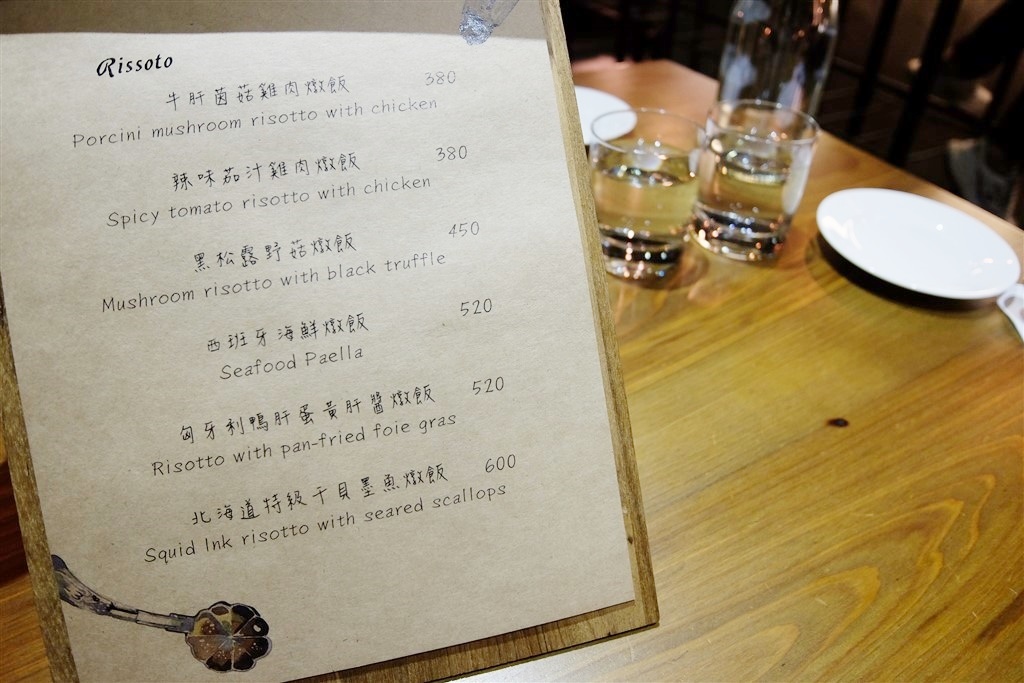 Rissoto
牛肝菌菇雞肉燉飯 380
Porcini mushroom risotto with chicken
辣味茄汁雞肉燉飯 380
Spicy tomato risotto with chicken
黑松露野菇燉飯 450
Mushroom risotto with black truffle
西班牙海鮮燉飯 520
Seafood Paella
匈牙利鴨肝蛋黃肝醬燉飯 520
Risotto with pan-fried foie gras
北海道特級干貝墨魚燉飯 600
Squid Ink risotto with seared scallops